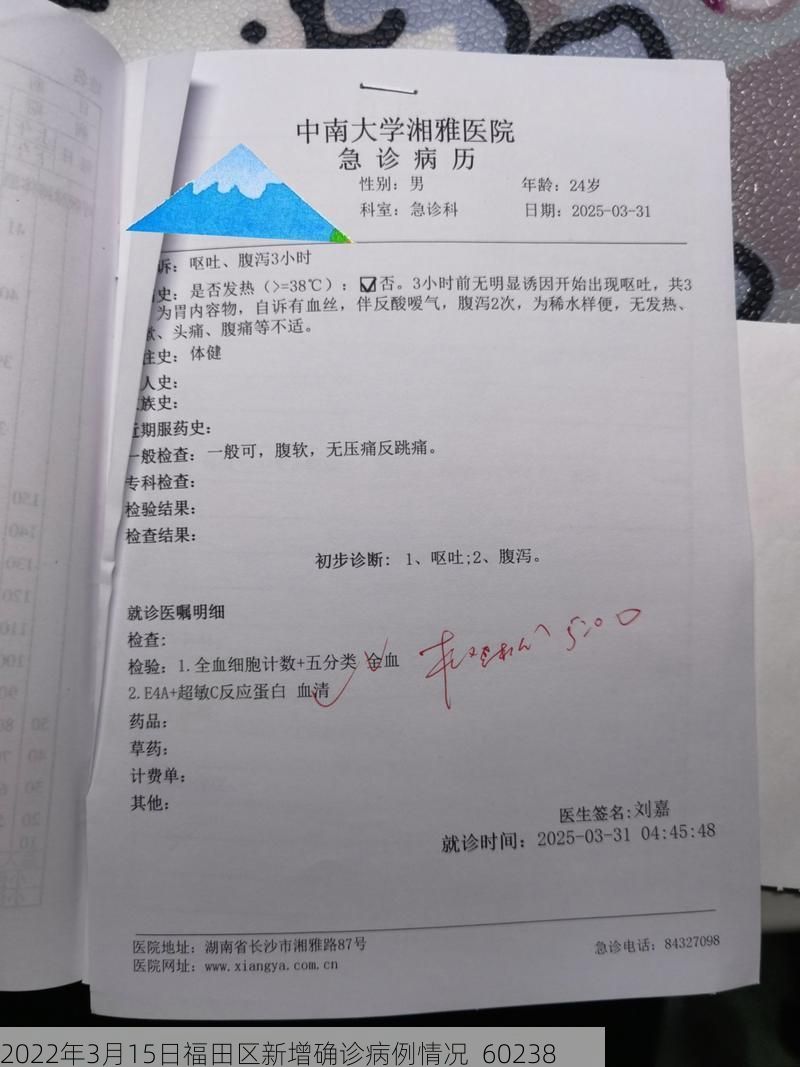 中南大学湘雅医院
急诊病历
性别：男 年龄：24岁
科室：急诊科 日期：2025-03-31
诉：呕吐、腹泻3小时
史：是否发热（>=38℃）：☑否。3小时前无明显诱因开始出现呕吐，共3
为胃内容物，自诉有血丝，伴反酸嗳气，腹泻2次，为稀水样便，无发热、
、头痛、腹痛等不适。
往史：体健
人史：
族史：
近期服药史：
一般检查：一般可，腹软，无压痛反跳痛。
专科检查：
检验结果：
检查结果：
初步诊断：1、呕吐;2、腹泻。
就诊医嘱明细
检查：
检验：1.全血细胞计数+五分类 全血
2.E4A+超敏C反应蛋白 血清
药品：
草药：
计费单：
其他：
医生签名:刘嘉
就诊时间：2025-03-31 04:45:48
医院地址：湖南省长沙市湘雅路87号 急诊电话：84327098
医院网址：www.xiangya.com.cn
2022年3月15日福田区新增确诊病例情况 60238